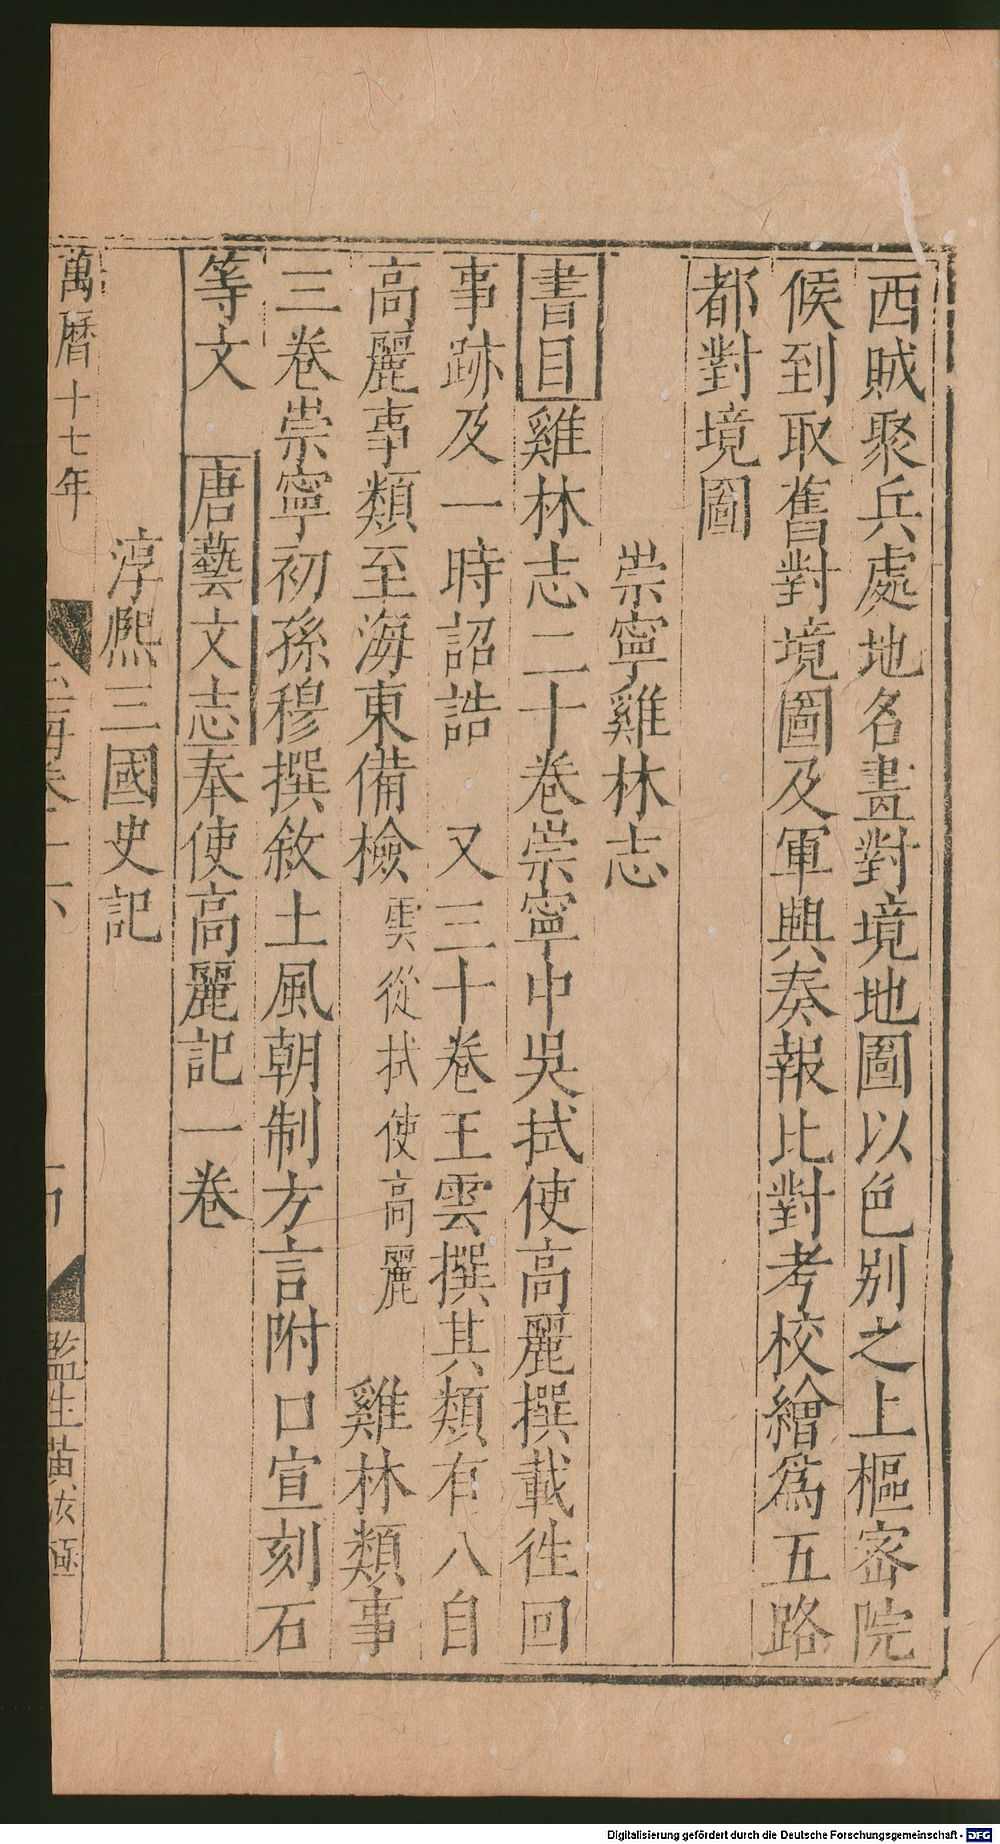 西賊聚兵處地名畫對境地圖以色別之上樞密院
候到取舊對境圖及軍興奏報比對考校繪爲五路
都對境圖
崇寧雞林志
書目雞林志二十卷崇寧中吳拭使高麗撰載徃回
事跡及一時詔誥　又三十卷王雲撰其類有八自
高麗事類至海東備檢雲從拭使高麗　雞林類事
三卷崇寧初孫穆撰敘土風朝制方言附口宣刻石
等文　唐藝文志奉使高麗記一卷
淳熈三國史記
萬曆十七年
監生黃
Digitalisierung gefördert durch die Deutsche Forschungsgemeinschaft - DFG